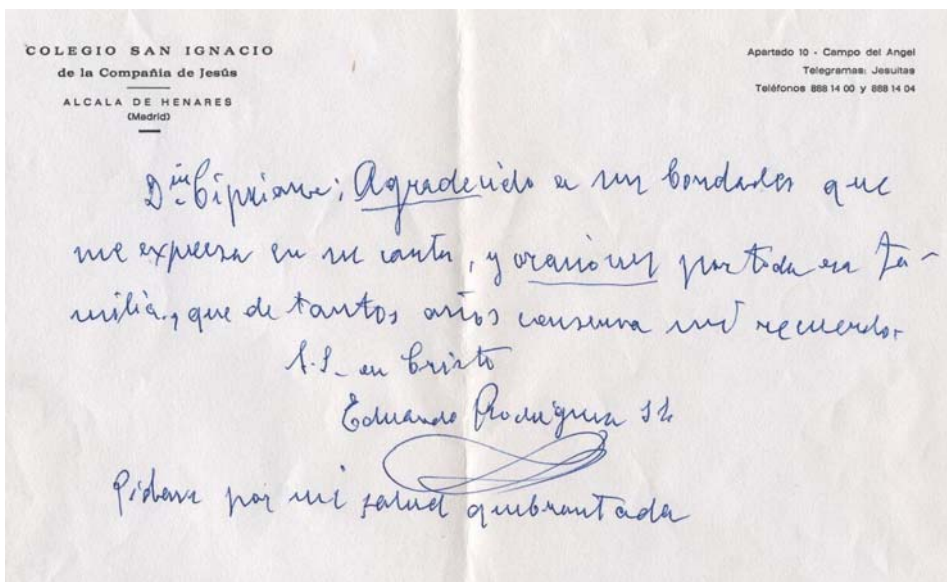 COLEGIO SAN IGNACIO
de la Compañía de Jesús
ALCALA DE HENARES
(Madrid)
Apartado 10 - Campo del Angel
Telegramas: Jesuitas
Teléfonos 888 14 00 y 888 14 04
Cipriano; Agradecido a sus bondades que
me expresa en su carta, y oraciones por toda esa fa-
milia, que de tantos años conserva mi recuerdo.
S.S. en Cristo
Eduardo Rodríguez SL
Pidan por mi salud quebrantada